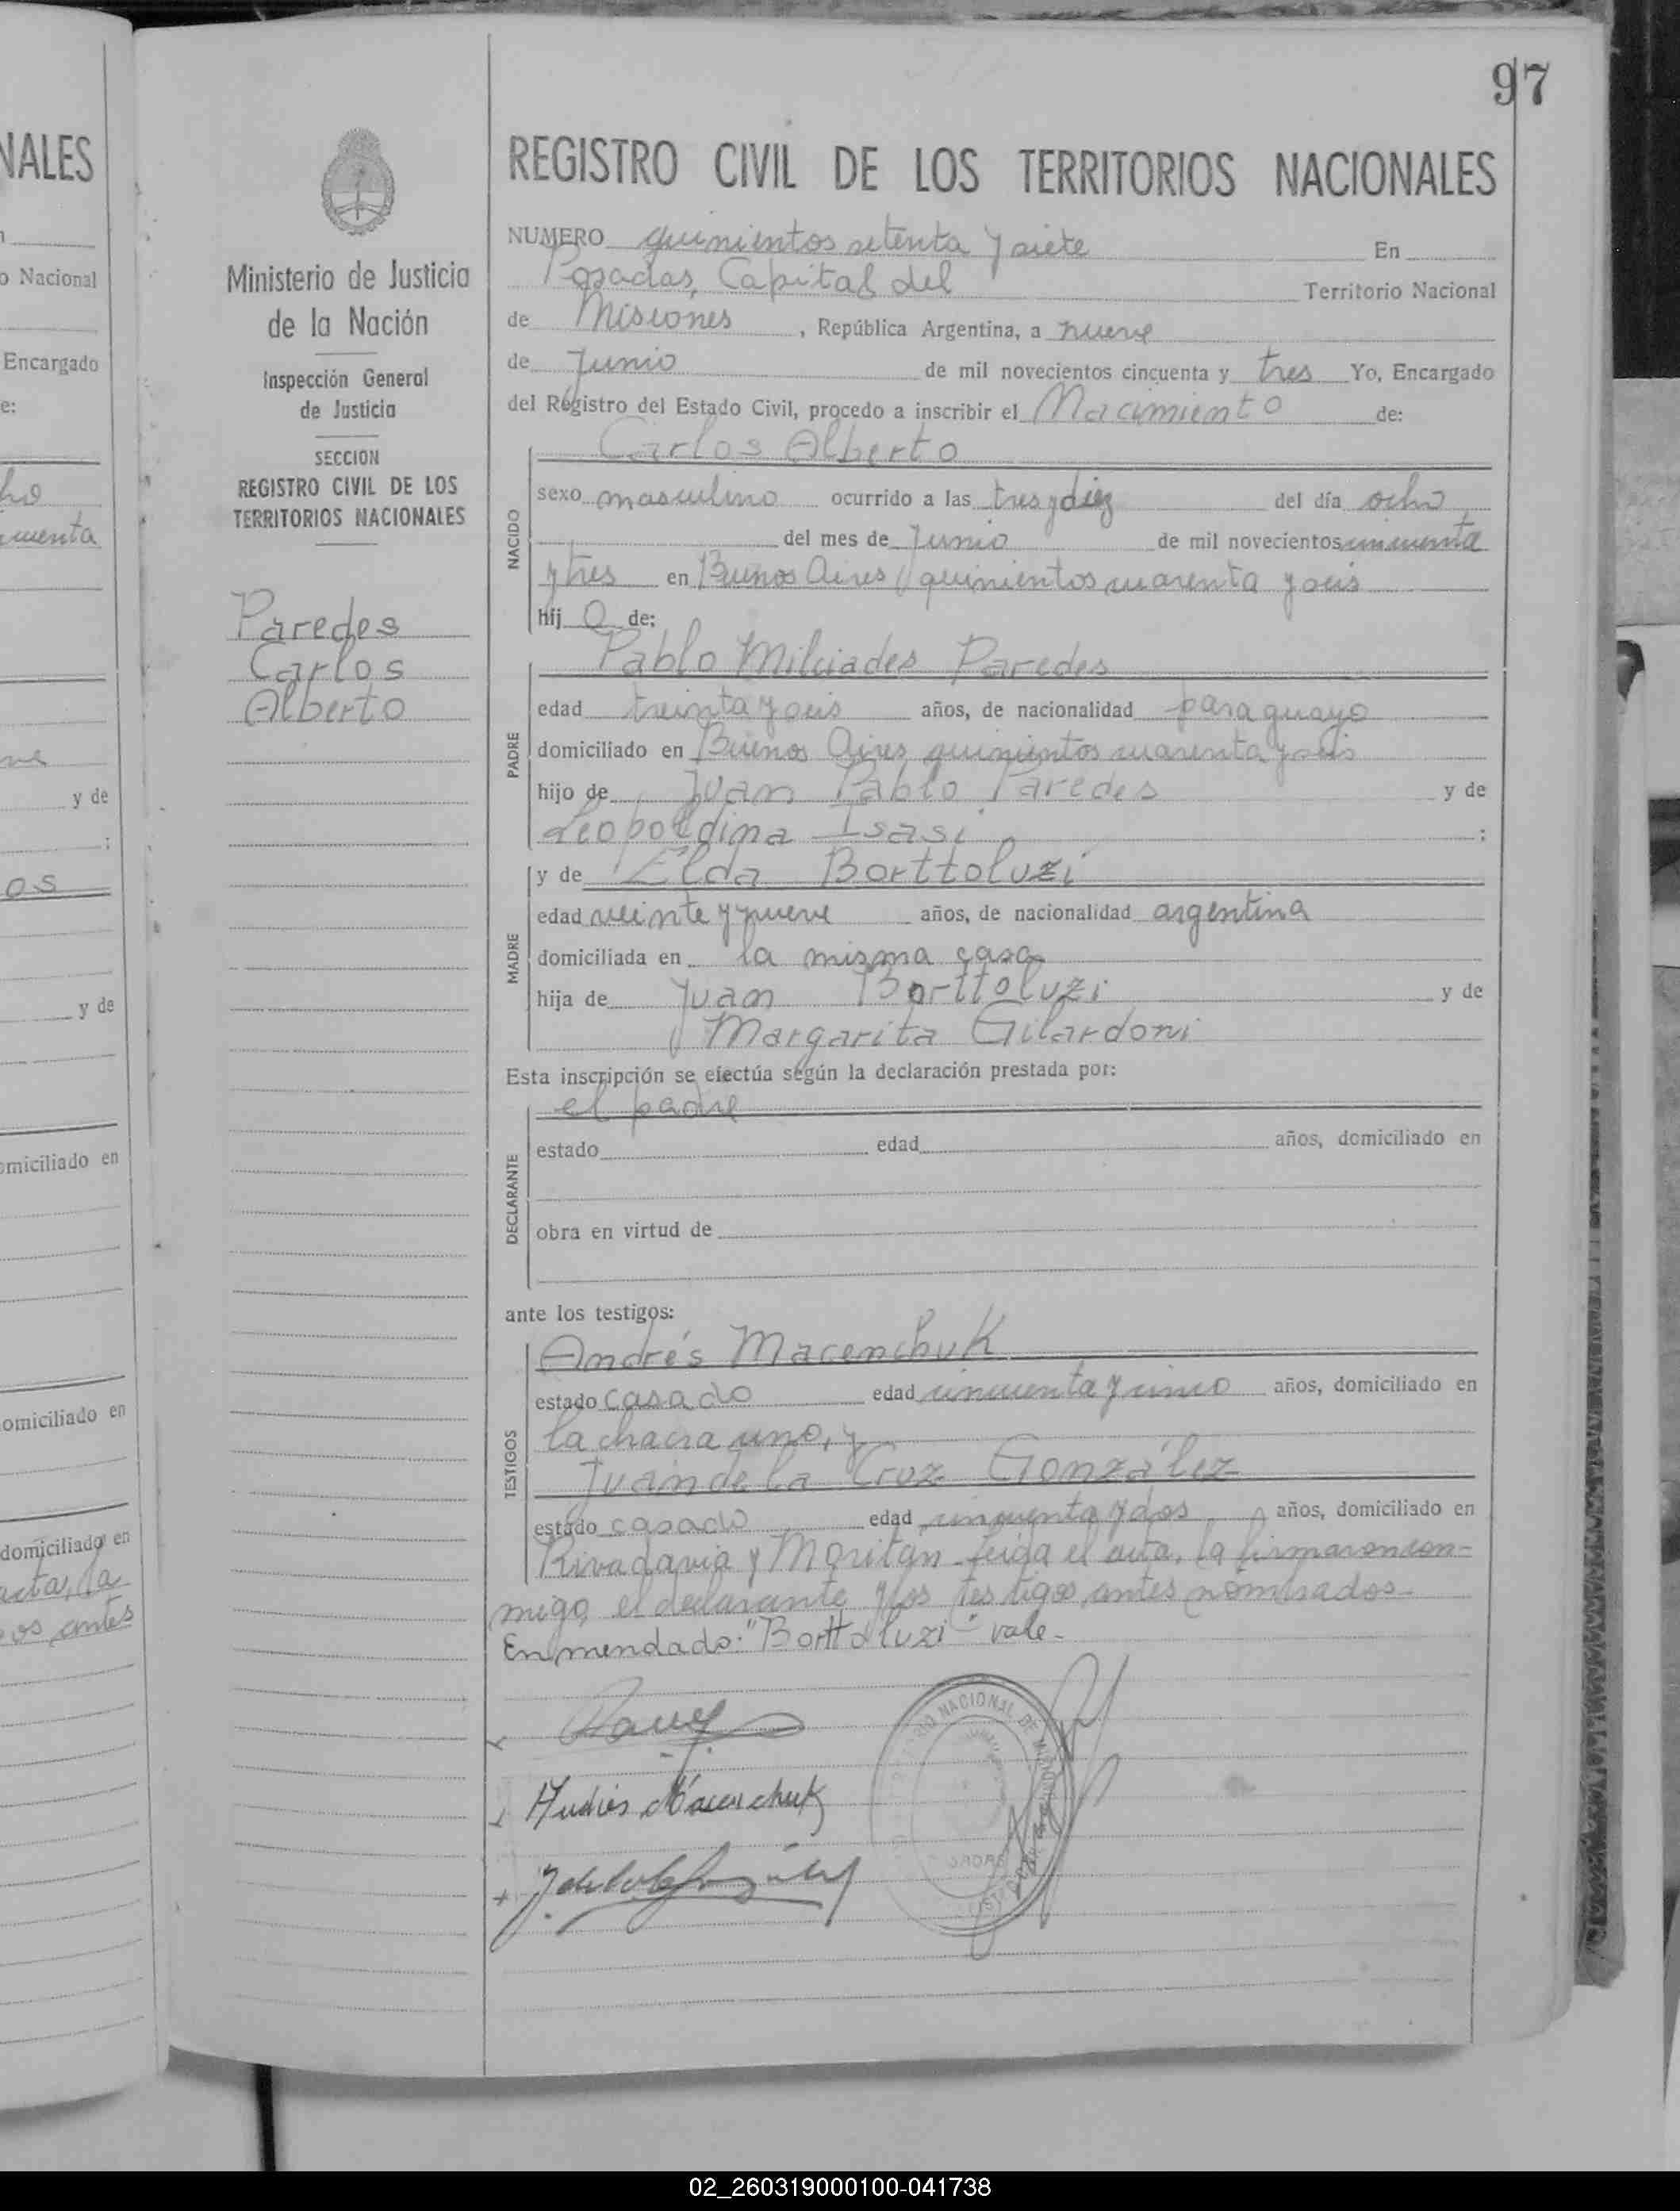 97
NALES
o Nacional
Encargado
e:
cuenta
y de
:
os
y de
omiciliado en
omiciliado en
domiciliado en
acta, la
os antes
Ministerio de Justicia
de la Nación
Inspección General
de Justicia
SECCION
REGISTRO CIVIL DE LOS
TERRITORIOS NACIONALES
Paredes
Carlos
Alberto
REGISTRO CIVIL DE LOS TERRITORIOS NACIONALES
NUMERO quinientos setenta y siete En
Posadas, Capital del Territorio Nacional
de Misiones, República Argentina, a nueve
de Junio de mil novecientos cincuenta y tres Yo, Encargado
del Registro del Estado Civil, procedo a inscribir el Nacimiento de:
Carlos Alberto
NACIDO
sexo masculino ocurrido a las tres y diez del día ocho
del mes de Junio de mil novecientos cincuenta
y tres en Buenos Aires quinientos cuarenta y seis
hij o de:
Pablo Milciades Paredes
PADRE
edad treinta y seis años, de nacionalidad paraguayo
domiciliado en Buenos Aires quinientos cuarenta y seis
hijo de Juan Pablo Paredes y de
Leopoldina Isasi :
y de Elda Borttoluzi
MADRE
edad veinte y nueve años, de nacionalidad argentina
domiciliada en la misma casa
hija de Juan Borttoluzi y de
Margarita Gilardoni
Esta inscripción se efectúa según la declaración prestada por:
el padre
DECLARANTE
estado edad años, domiciliado en
obra en virtud de
ante los testigos:
Andrés Macenchuk
TESTIGOS
estado casado edad cincuenta y cinco años, domiciliado en
la chacra uno, y
Juan de la Cruz González
estado casado edad cincuenta y dos años, domiciliado en
Rivadavia y Moritán leida el acta, la firmaron con-
migo, el declarante y los testigos antes nombrados.
Enmendado: "Borttoluzi" vale.
Andrés Macenchuk
NACIONAL DE MISIONES
02_260319000100-041738